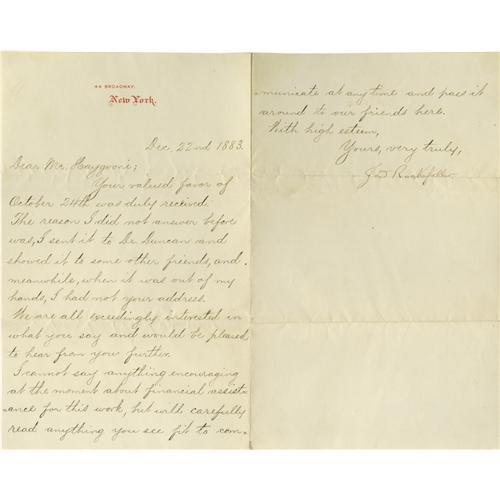 44 BROADWAY.
New York.
Dec. 22nd 1883.
Dear Mr. Haygood;
Your valued favor of
October 24th was duly received.
The reason I did not answer before
was, I sent it to Dr. Duncan and
showed it to some other friends, and
meanwhile, when it was out of my
hands, I had not your address.
We are all exceedingly interested in
what you say and would be pleased
to hear from you further.
I cannot say anything encouraging
at the moment about financial assist-
ance for this work, but will carefully
read anything you see fit to com-
municate at any time and pass it
around to our friends here.
With high esteem,
Yours, very truly,
J. D. Rockefeller